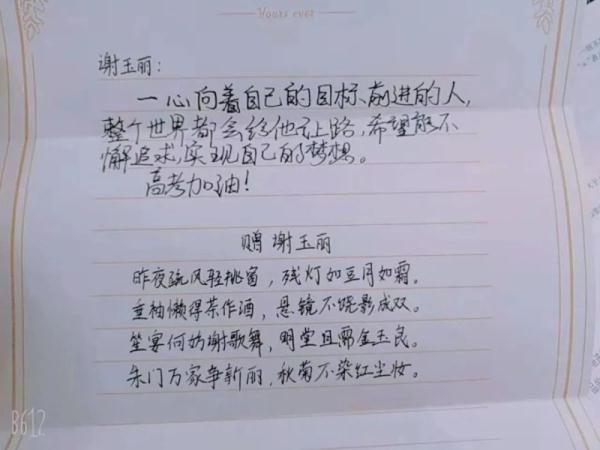 Yours ever
谢玉丽：
一心向着自己的目标前进的人，
整个世界都会给他让路，希望能不
懈追求，实现自己的梦想。
高考加油！
赠谢玉丽
昨夜疏风轻挑窗，残灯如豆月如霜。
垂袖懒得茶作酒，悬镜不晓影成双。
笙宴何妨谢歌舞，明堂且需金玉良。
朱门万家争新丽，秋菊不染红尘妆。
B612